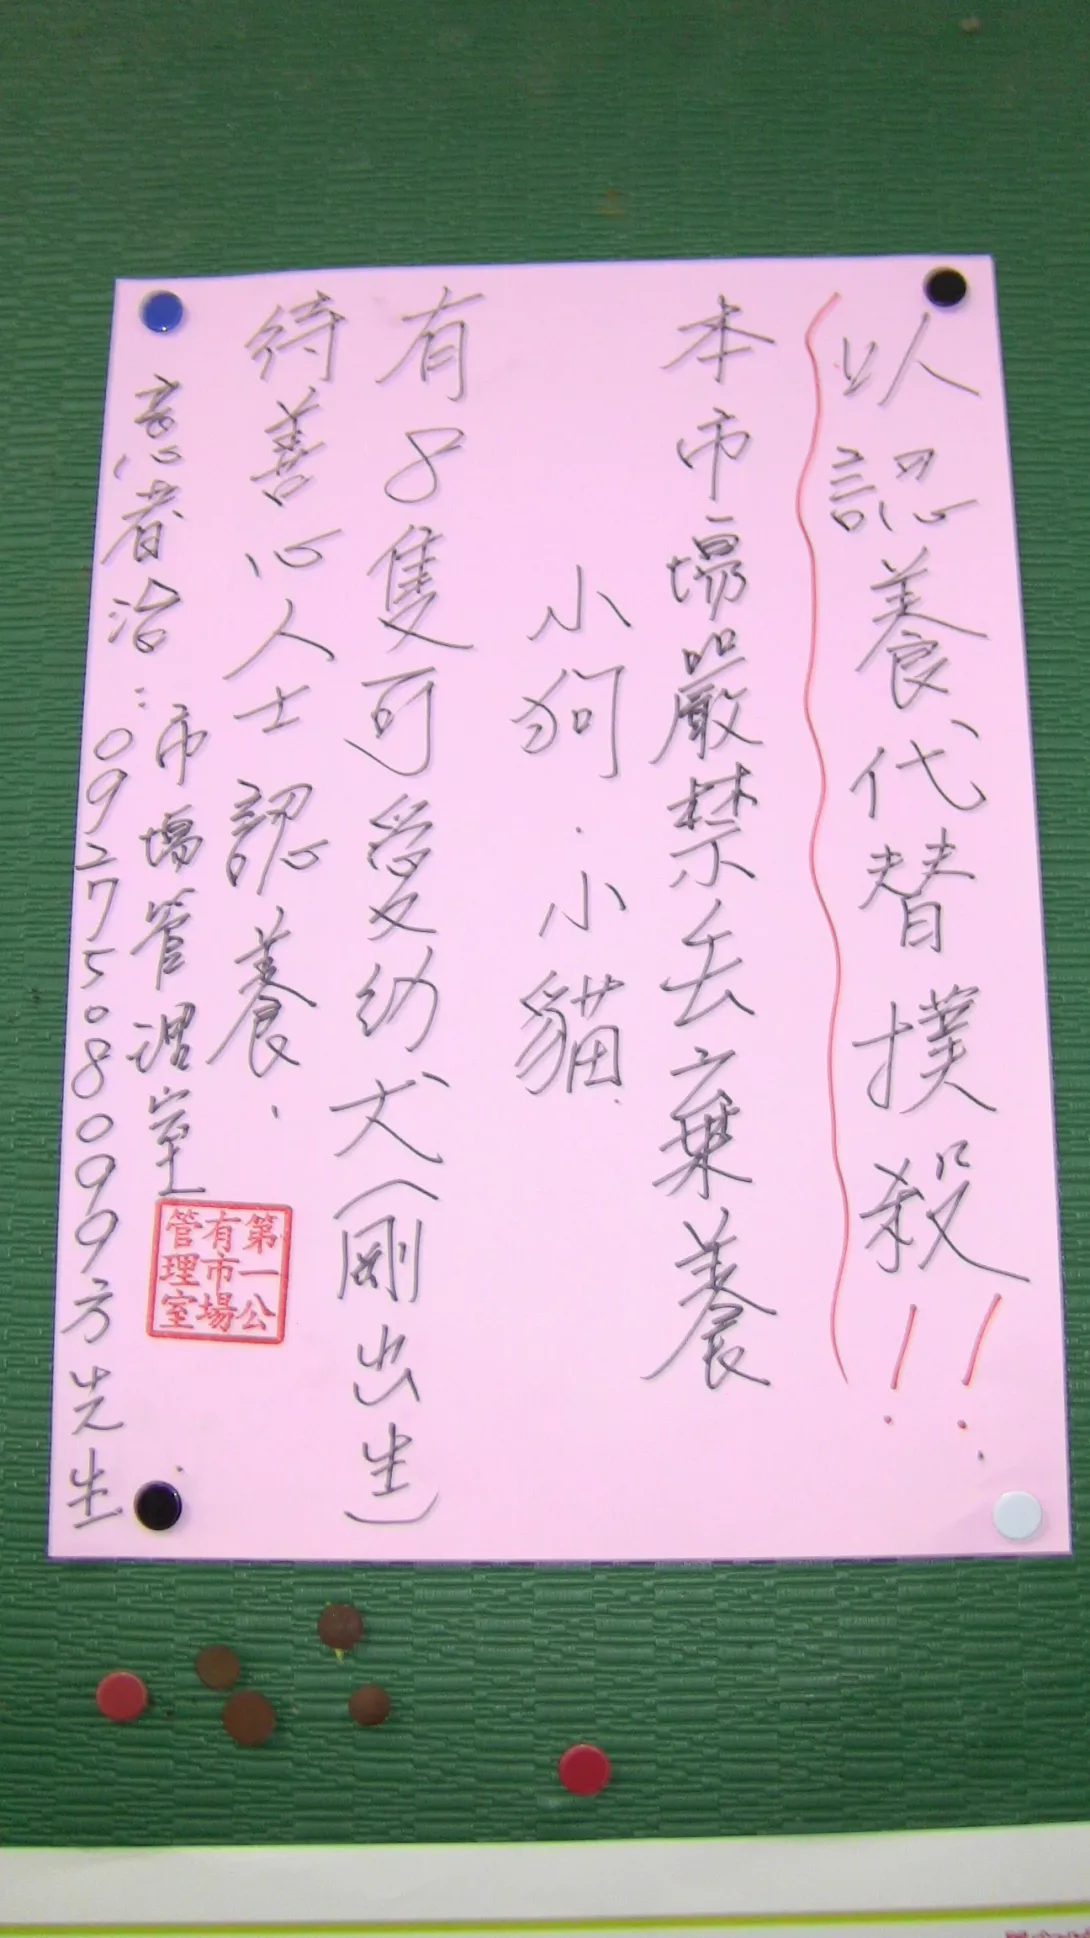 以認養代替撲殺!!
本市場嚴禁丟棄養
小狗.小貓.
有8隻可愛幼犬(剛出生)
待善心人士認養.
意者洽:市場管理室
第一公
有市場
管理室
0927508099方先生